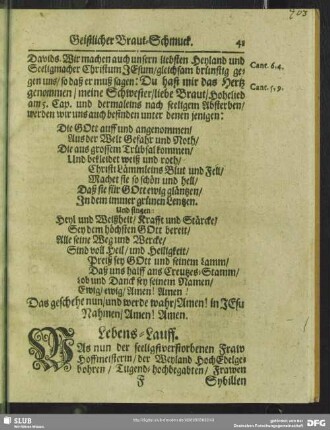 Geistlicher Braut-Schmuck. 41
Davids. Wir machen auch unsern liebsten Heyland und
Seeligmacher Christum JEsum/ gleichsam brünstig ge- Cant. 6.4.
gen uns/ so daß er muß sagen: Du hast mir das Hertz
genommen/ meine Schwester/ liebe Braut/ Hohelied Cant. 5.9.
am 5. Cap. und dermaleins nach seeligem Absterben/
werden wir uns auch befinden unter denen jenigen:
Die GOtt auff und angenommen/
Aus der Welt Gefahr und Noth/
Die aus grossem Trübsal kommen/
Und bekleidet weiß und roth/
Christi Lämmleins Blut und Fell/
Machet sie so schön und hell/
Daß sie für GOtt ewig gläntzen/
In dem immer grünen Lentzen.
Und singen:
Heyl und Weißheit/ Krafft und Stärcke/
Sey dem höchsten GOtt bereit/
Alle seine Weg und Wercke/
Sind voll Heil/ und Heiligkeit/
Preiß sey GOtt und seinem Lamm/
Daß uns halff ans Creutzes-Stamm/
Lob und Danck sey seinem Namen/
Ewig/ ewig/ Amen! Amen!
Das geschehe nun/ und werde wahr/ Amen! in JEsu
Nahmen/ Amen! Amen.
Lebens-Lauff.
WAs nun der seeligstverstorbenen Fraw
Hoffmeisterin/ der Weyland HochEdelge-
bohren/ Tugend/ hochbegabten/ Frawen
F Sybillen
SLUB
DFG